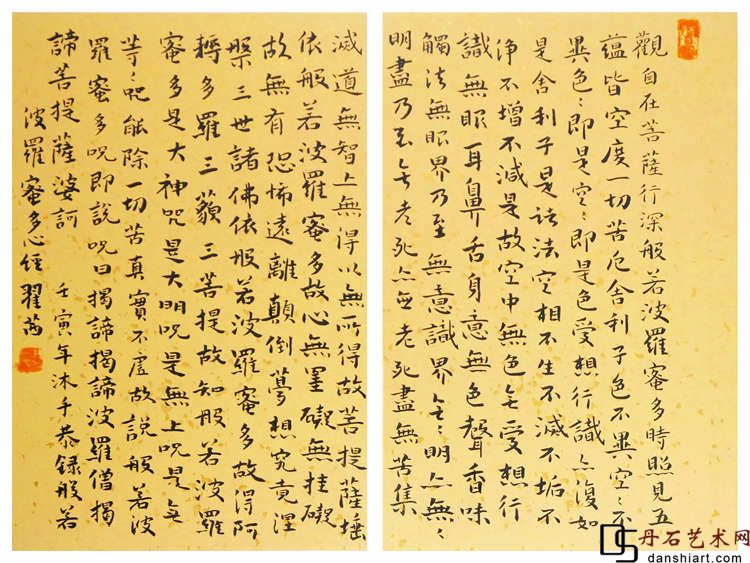 觀自在菩薩行深般若波羅蜜多時照見五
蘊皆空度一切苦厄舍利子色不異空〻不
異色〻即是空〻即是色受想行識亦復如
是舍利子是諸法空相不生不滅不垢不
淨不增不減是故空中無色無受想行
識無眼耳鼻舌身意無色聲香味
觸法無眼界乃至無意識界無〻明亦無〻
明盡乃至無老死亦無老死盡無苦集
滅道無智亦無得以無所得故菩提薩埵
依般若波羅蜜多故心無罣礙無挂礙
故無有恐怖遠離顛倒夢想究竟涅
槃三世諸佛依般若波羅蜜多故得阿
耨多羅三藐三菩提故知般若波羅
蜜多是大神咒是大明咒是無上咒是無
等〻咒能除一切苦真實不虛故說般若波
羅蜜多咒即說咒曰揭諦揭諦波羅僧揭
諦菩提薩婆訶 壬寅年沐手恭錄般若
波羅蜜多心經翟
丹石艺术网
danshiart.com